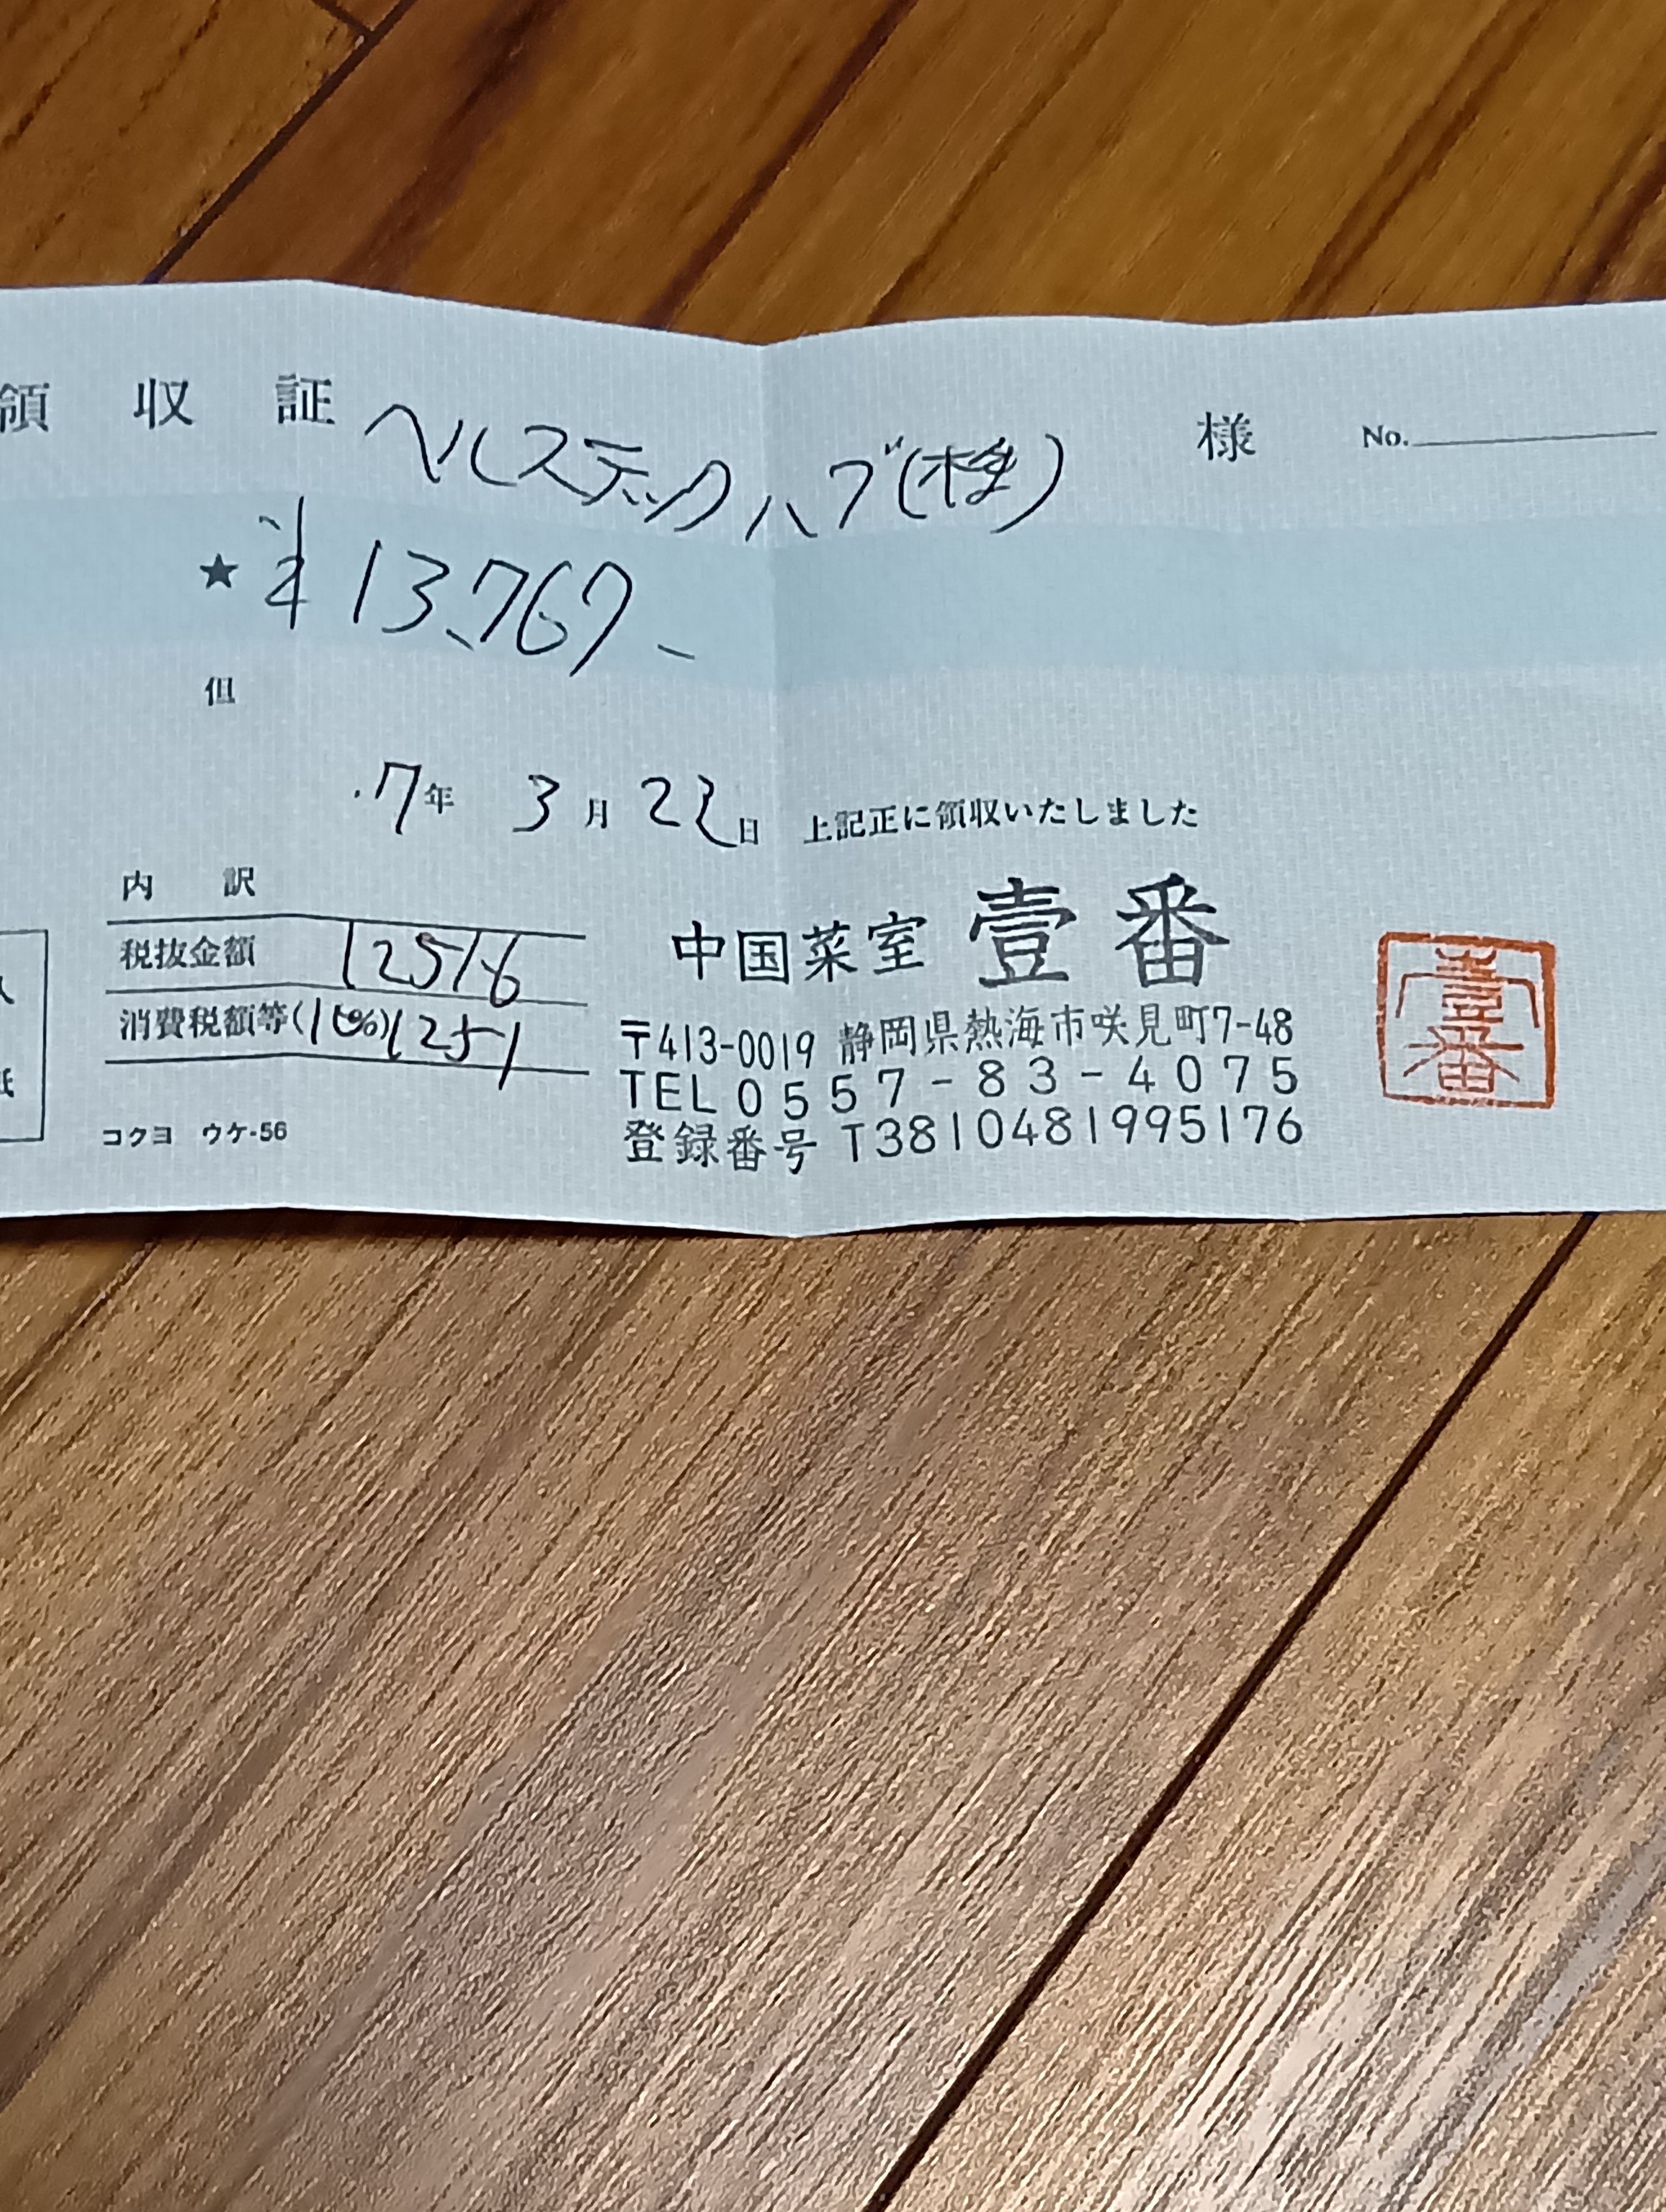 領 収 証 ヘルステックハブ(株) 様 No.
★ ¥13,767-
但
.7年 3月 22日 上記正に領収いたしました
内 訳
税抜金額 12516
消費税額等(10%) 1251
コクヨ ウケ-56
中国菜室 壹番
〒413-0019 静岡県熱海市咲見町7-48
TEL 0557-83-4075
登録番号 T3810481995176
壹番